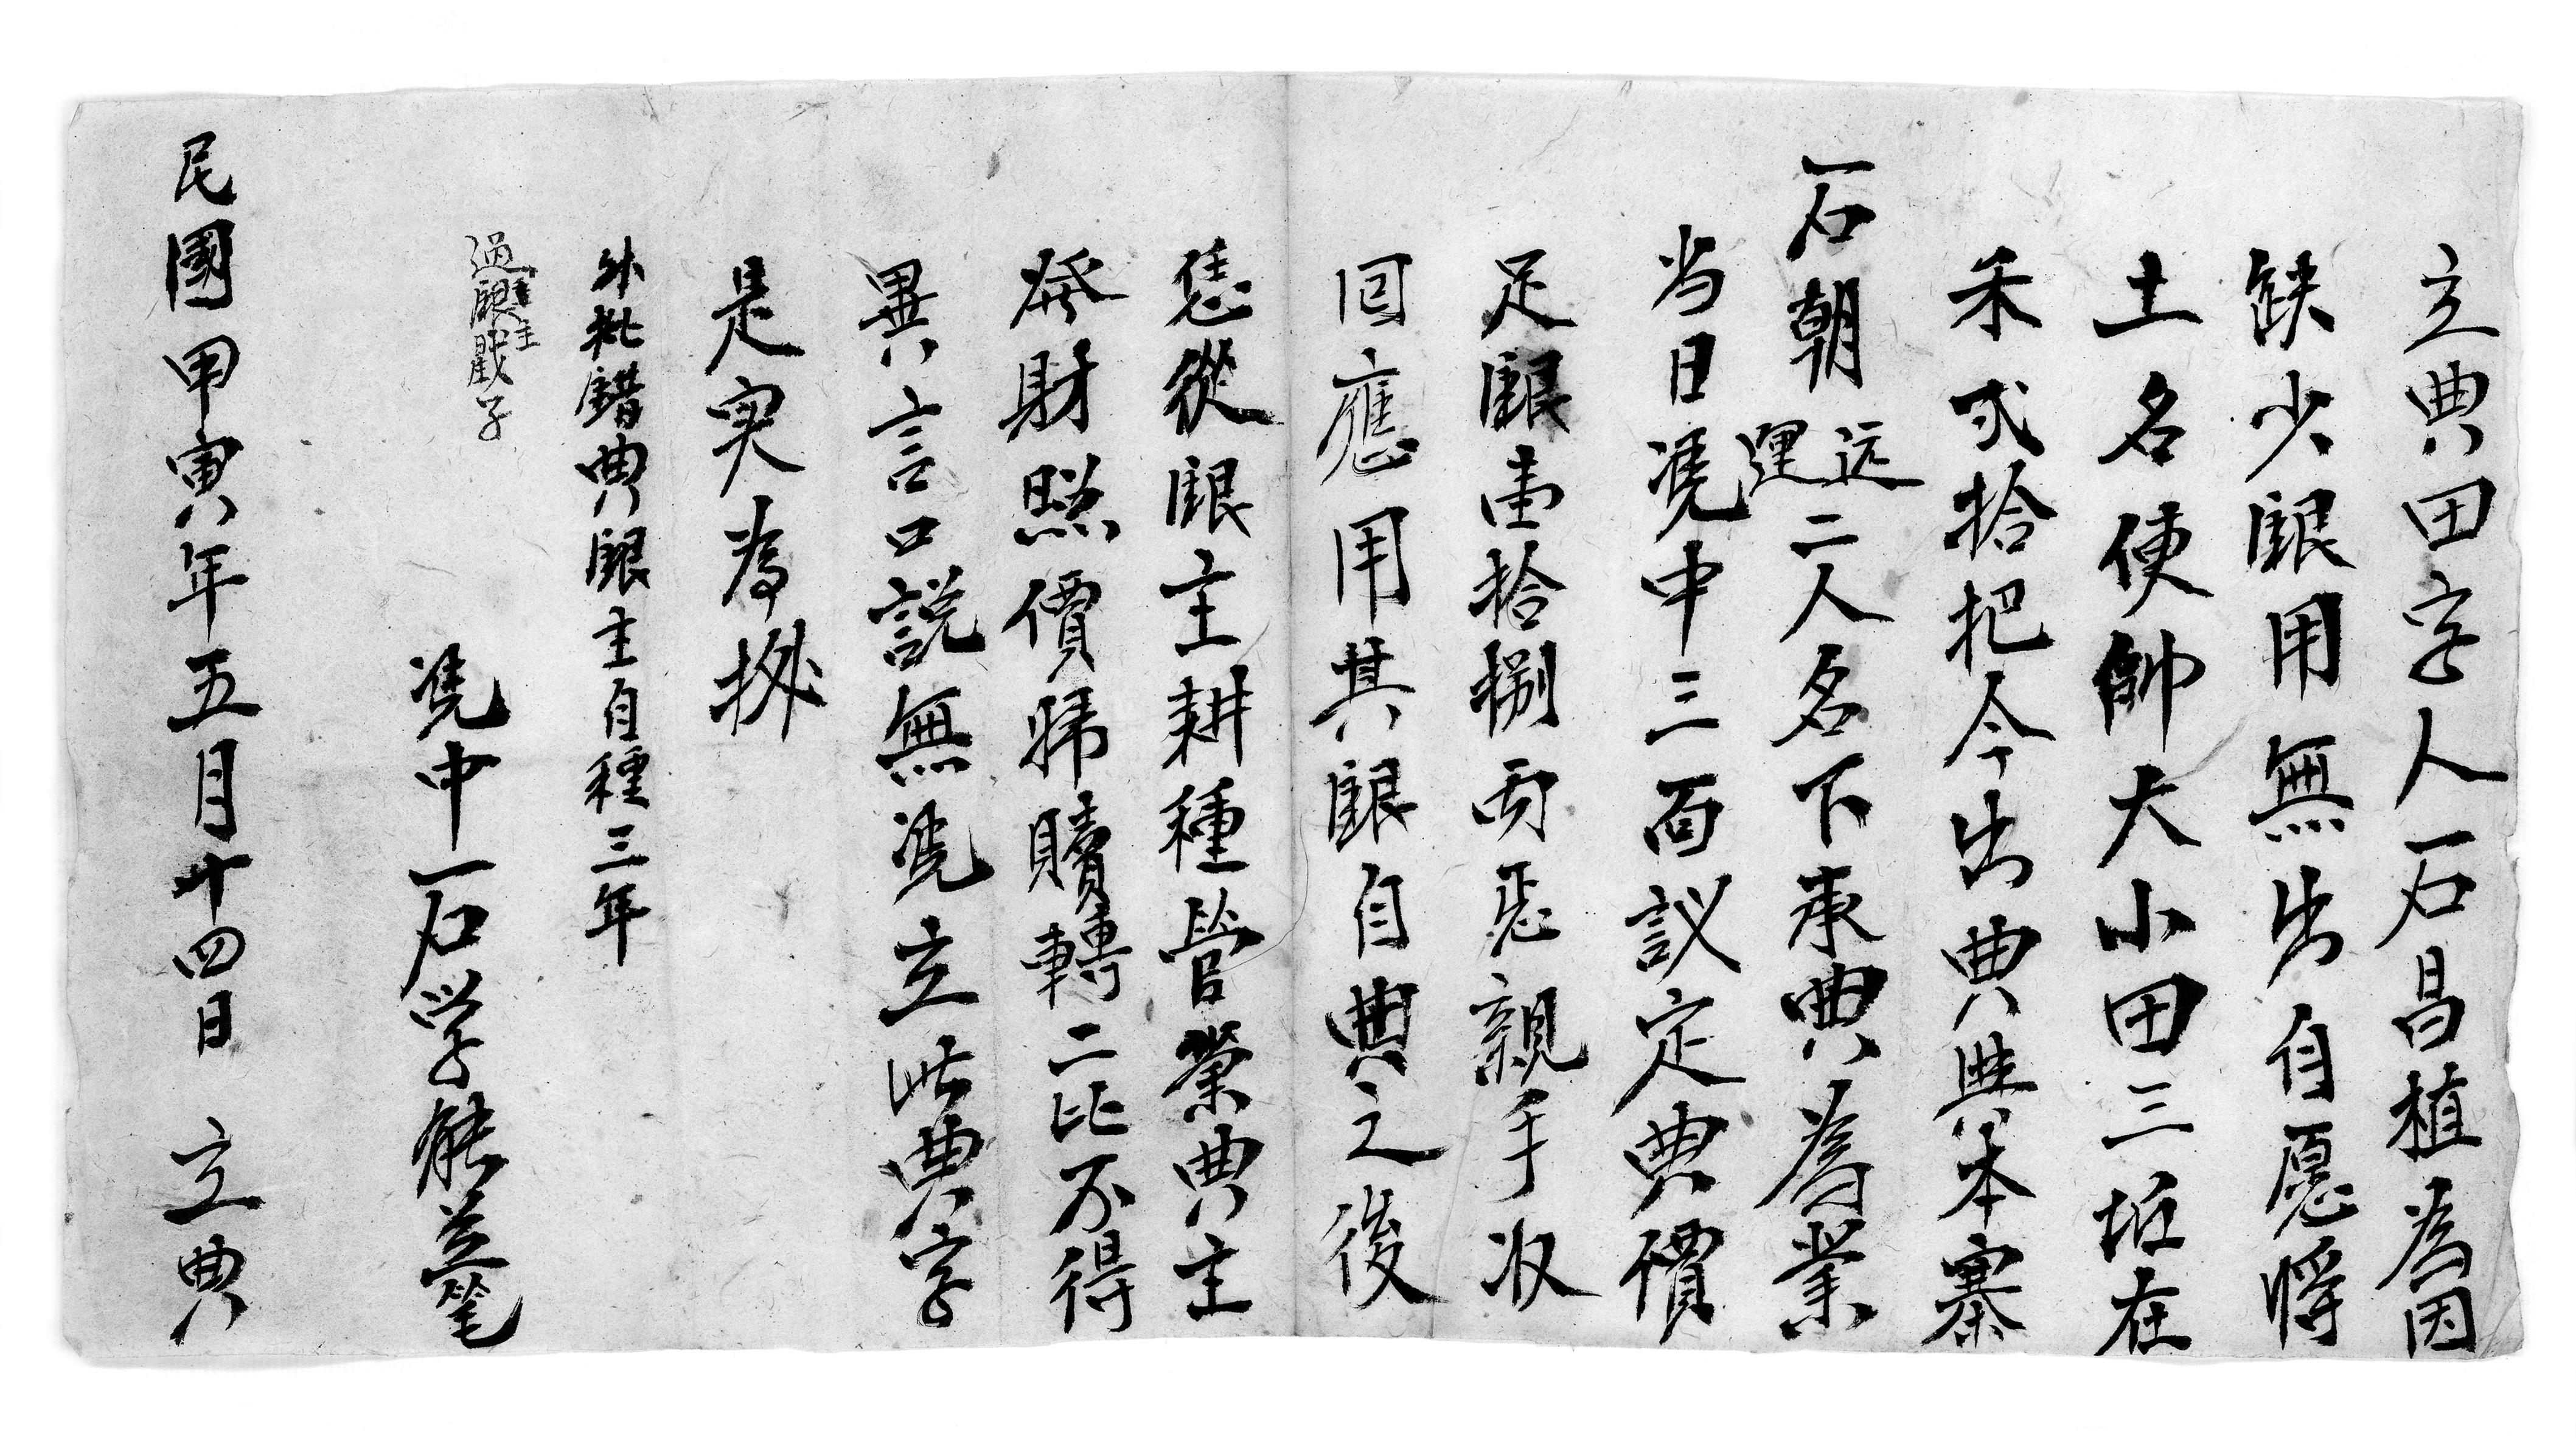 立典田字人石昌植為因
缺少銀用無出自愿將
土名便帥大小田三坵在
禾弍拾把今出典與本寨
石朝運远二人名下承典為業
当日憑中三面議定典價
足銀壹拾捌両正親手収
回應用其銀自典之後
恁從銀主耕種管業典主
發財照價歸贖轉二比不得
異言口説無憑立此典字
是实為拠
外批錯典銀主自種三年
過銀戥子
主
憑中石学能並笔
民國甲寅年五月十四日 立典